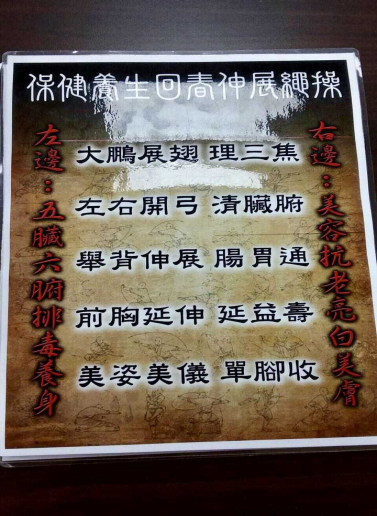 保健養生回春伸展繩操
右邊：美容抗老亮白美膚
大鵬展翅 理三焦
左右開弓 清臟腑
舉背伸展 腸胃通
前胸延伸 延益壽
美姿美儀 單腳收
左邊：五臟六腑排毒養身